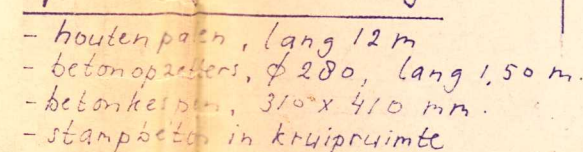 - houten palen, lang 12 m
- betonopzetters, ϕ 280, lang 1,50 m.
- betonkespen, 310 x 410 mm.
- stampbeton in kruipruimte